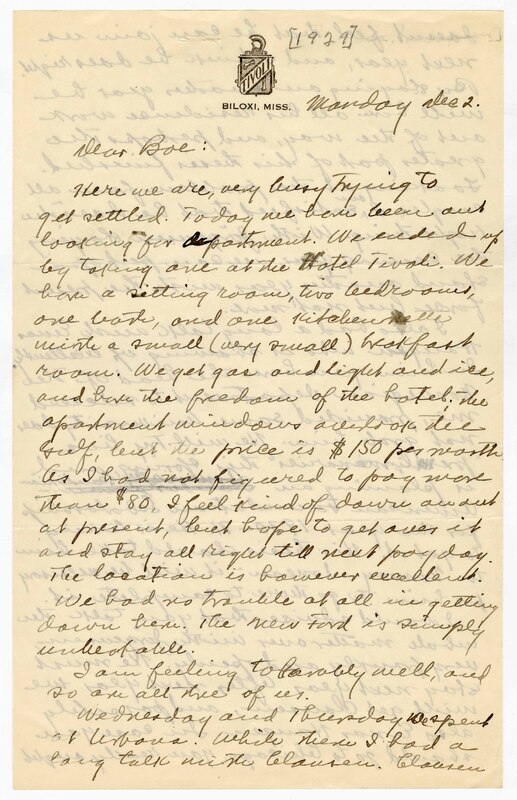 [1929]
TIVOLI
BILOXI, MISS.
Monday Dec 2.
Dear Boe:
Here we are, very busy trying to
get settled. Today we have been out
looking for apartment. We ended up
by taking one at the Hotel Tivoli. We
have a sitting room, two bedrooms,
one bath, and one kitchenette
with a small (very small) breakfast
room. We get gas and light and ice,
and have the freedom of the hotel; the
apartment windows overlook the
gulf, but the price is $150 per month
As I had not figured to pay more
than $80, I feel kind of down and out
at present, but hope to get over it
and stay all right till next payday.
The location is however excellent.
We had no trouble at all in getting
down here. The new Ford is simply
unbeatable.
I am feeling tolerably well, and
so are all three of us.
Wednesday and Thursday we spent
at Urbana. While there I had a
long talk with Clausen. Clausen